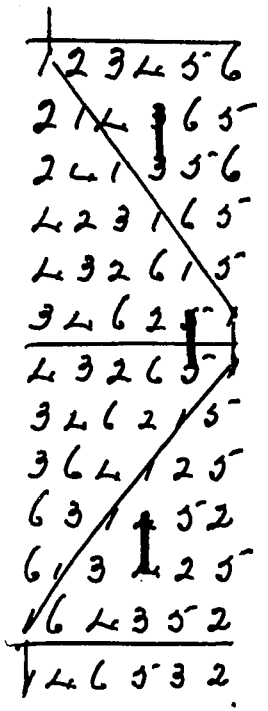 1 2 3 4 5 6
2 1 4 3 6 5
2 4 1 3 5 6
4 2 3 1 6 5
4 3 2 6 1 5
3 4 6 2 5 1
4 3 2 6 5 1
3 4 6 2 1 5
3 6 4 1 2 5
6 3 1 4 5 2
6 1 3 4 2 5
1 6 4 3 5 2
1 4 6 5 3 2